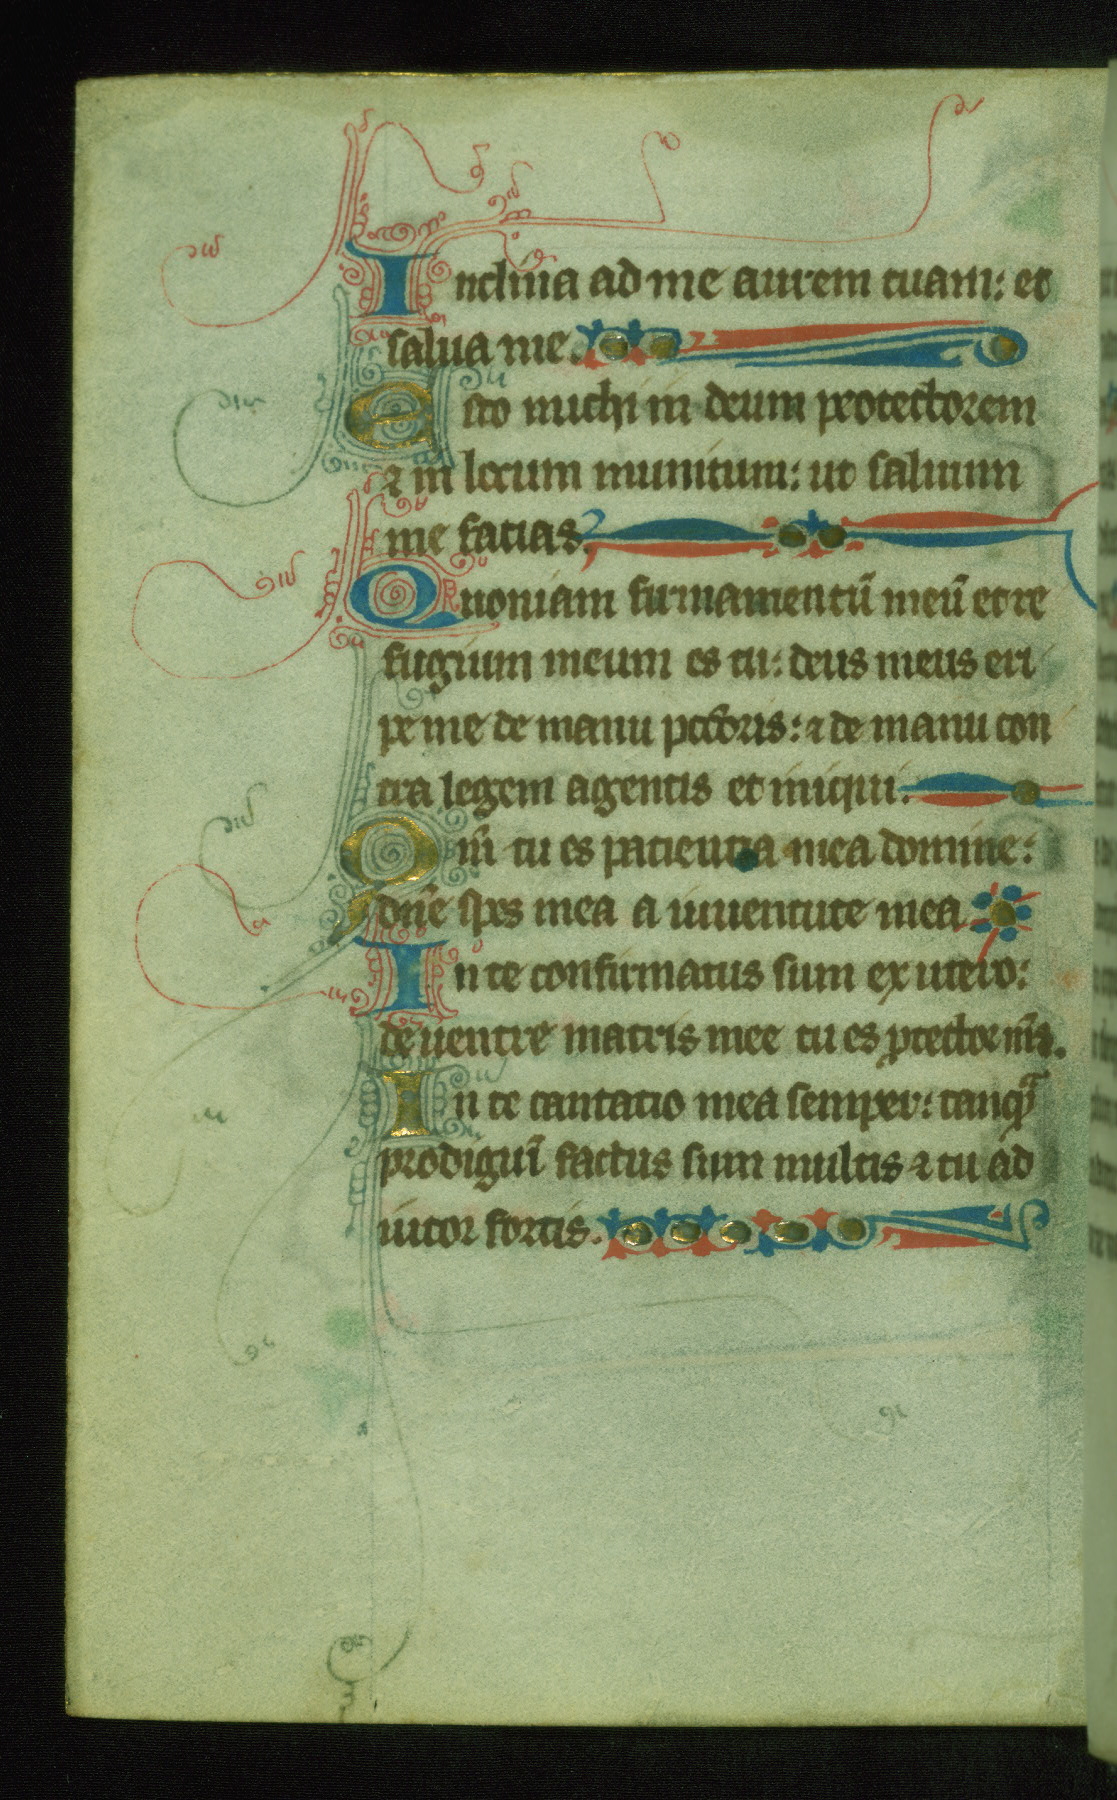 Inclina ad me aurem tuam: et
salua me.
Esto michi in deum protectorem
⁊ in locum munitum: ut saluum
me facias.
Quoniam firmamentū meū et re
fugium meum es tu: deus meus eri
pe me de manu pctōris: ⁊ de manu con
tra legem agentis et iniqui.
Qm̄ tu es patientia mea domine:
dn̄e spes mea a iuuentute mea
In te confirmatus sum ex utero:
de uentre matris mee tu es ꝓtector ms̄.
In te cantatio mea semper: tanqᷓ
prodigiū factus sum multis ⁊ tu ad
iutor fortis.